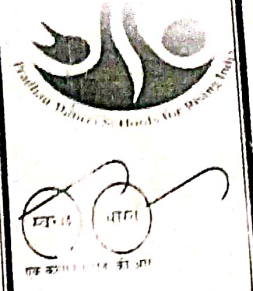 Pradhan Mantri Schools for Rising India
स्वच्छ भारत
एक कदम स्वच्छता की ओर